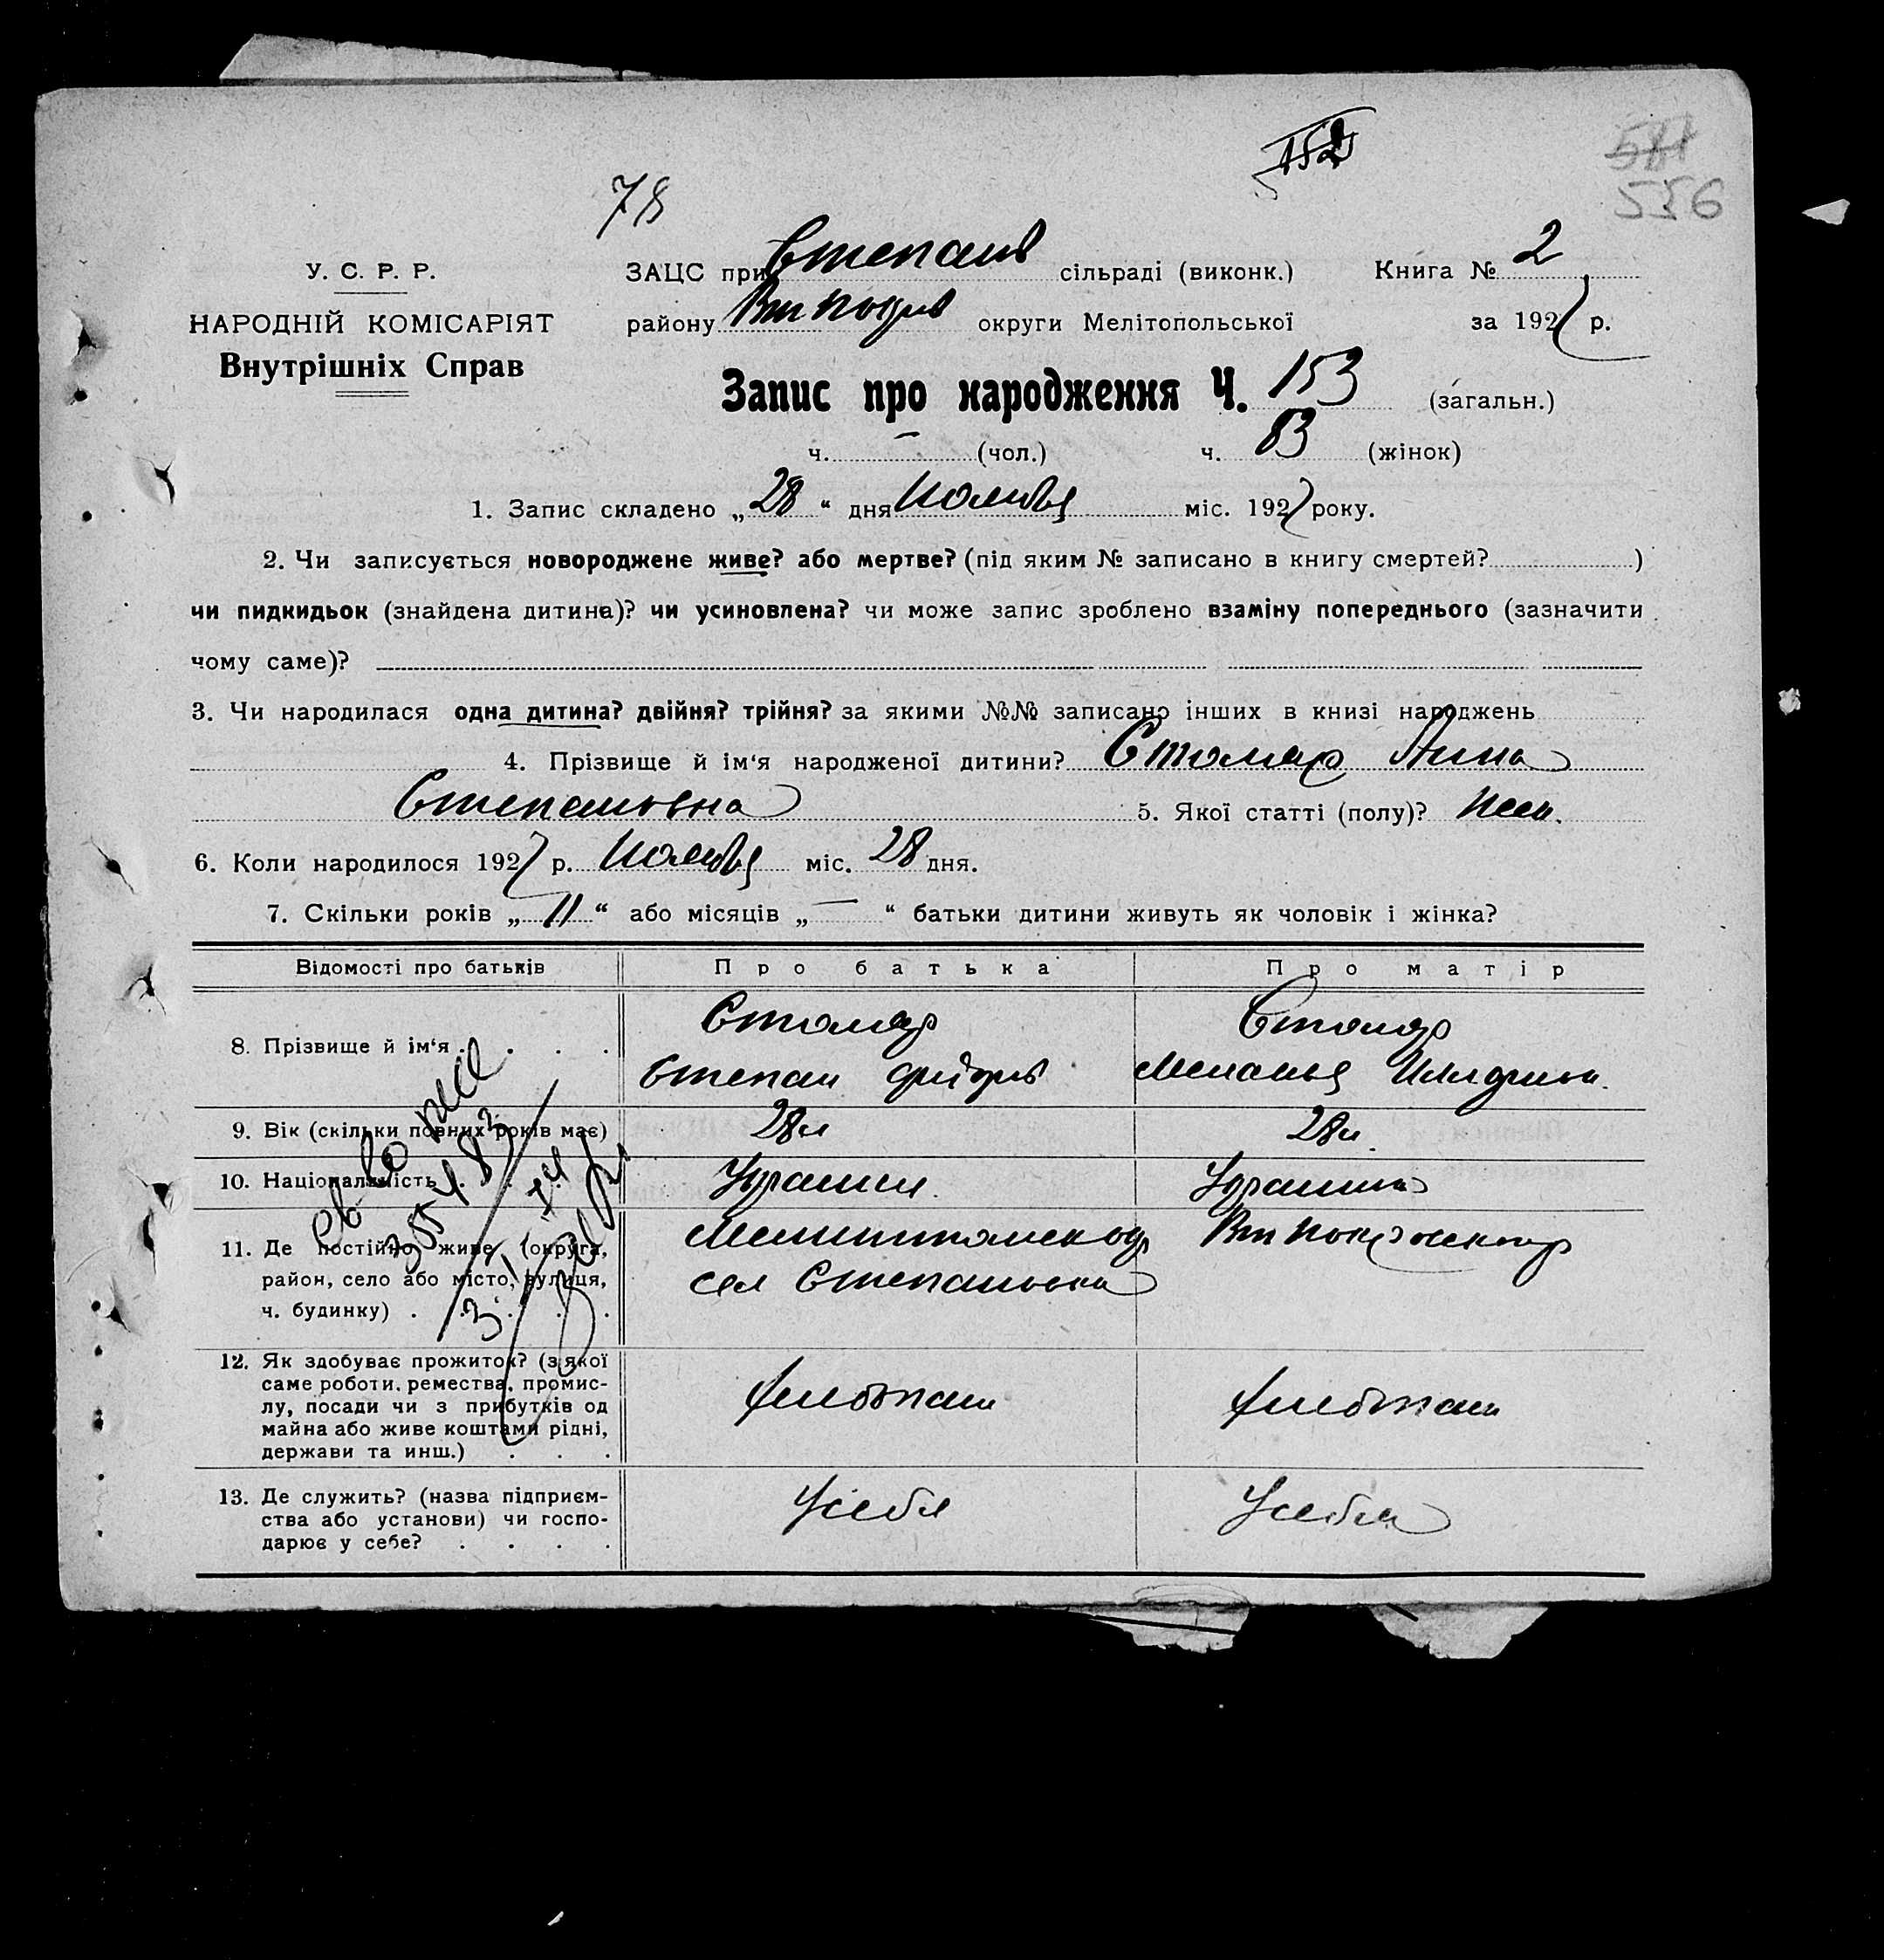 152
581
556
78
У. С. Р. Р.
НАРОДНІЙ КОМІСАРІЯТ
Внутрішніх Справ
ЗАЦС при Степанів сільраді (виконк.) Книга № 2
району округи Мелітопольської за 1927 р.
Запис про народження Ч. 153 (загальн.)
ч. — (чол.) ч. 83 (жінок)
1. Запис складено „28“ дня міс. 1927 року.
2. Чи записується новороджене живе? або мертве? (під яким № записано в книгу смертей? )
чи пидкидьок (знайдена дитина)? чи усиновлена? чи може запис зроблено взаміну попереднього (зазначити
чому саме)?
3. Чи народилася одна дитина? двійня? трійня? за якими №№ записано інших в книзі народжень
4. Прізвище й ім‘я народженої дитини? Столяр Анна
Степановна 5. Якої статті (полу)? жен.
6. Коли народилося 1927 р. міс. 28 дня.
7. Скільки років „11“ або місяців „—“ батьки дитини живуть як чоловік і жінка?
Відомості про батьків Про батька Про матір
8. Прізвище й ім‘я . . . . Столяр Столяр
Степан Меланья
9. Вік (скільки повних років має) 28 л 28 л
10. Національність . . . .
11. Де постійно живе (округа,
район, село або місто, вулиця,
ч. будинку) . . . . .
сел Степановка
12. Як здобуває прожиток? (з якої
саме роботи, ремества, промис-
лу, посади чи з прибутків од
майна або живе коштами рідні,
держави та инш.) . . .
хлебопаш хлебопаш
13. Де служить? (назва підприєм-
ства або установи) чи госпо-
дарює у себе? . . . .
У себя У себя